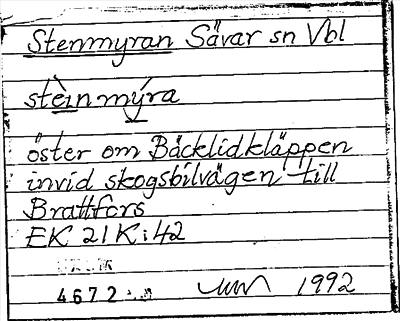 Stenmyran Sävar sn Vbl
stèinmýra
öster om Bäcklidkläppen
invid skogsbilvägen till
Brattfors
EK 21K:42
4672 1992